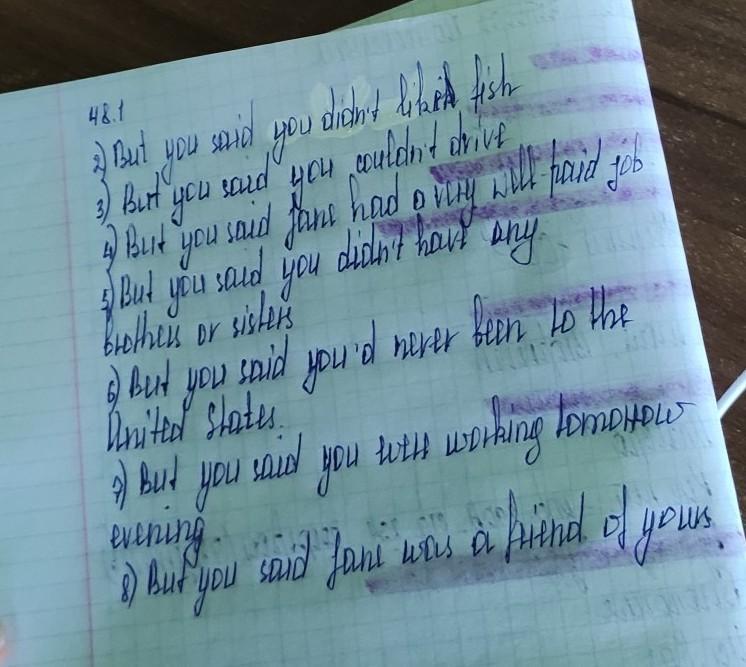 48.1
2) But you said you didn't like fish
3) But you said you couldn't drive
4) But you said Jane had a very well-paid job
5) But you said you didn't have any
brothers or sisters
6) But you said you'd never been to the
United States.
7) But you said you were working tomorrow
evening.
8) But you said Jane was a friend of yours.